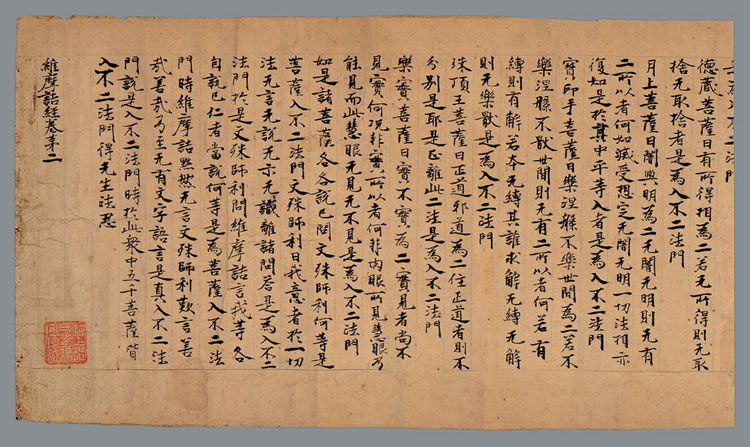 為入不二法門
德藏菩薩曰有所得相為二若无所得則无取
捨无取捨者是為入不二法門
月上菩薩曰闇與明為二无闇无明則无有
二所以者何如滅受想定无闇无明一切法相亦
復如是於其中平等入者是為入不二法門
寶印手菩薩曰樂涅槃不樂世間為二若不
樂涅槃不猒世間則无有二所以者何若有
縛則有解若本无縛其誰求解无縛无解
則无樂猒是為入不二法門
珠頂王菩薩曰正道邪道為二住正道者則不
分別是耶是正離此二法是為入不二法門
樂實菩薩曰實不實為二實見者尚不
見實何況非實所以者何非肉眼所見慧眼乃
能見而此慧眼无見无不見是為入不二法門
如是諸菩薩各各說已問文殊師利何等是
菩薩入不二法門文殊師利曰我意者於一切
法无言无說无示无識離諸問答是為入不二
法門於是文殊師利問維摩詰言我等各
自說已仁者當說何等是為菩薩入不二法
門時維摩詰默然无言文殊師利歎言善
哉善哉乃至无有文字語言是真入不二法
門說是入不二法門時於此眾中五千菩薩皆
入不二法門得无生法忍
維摩詰經卷第二